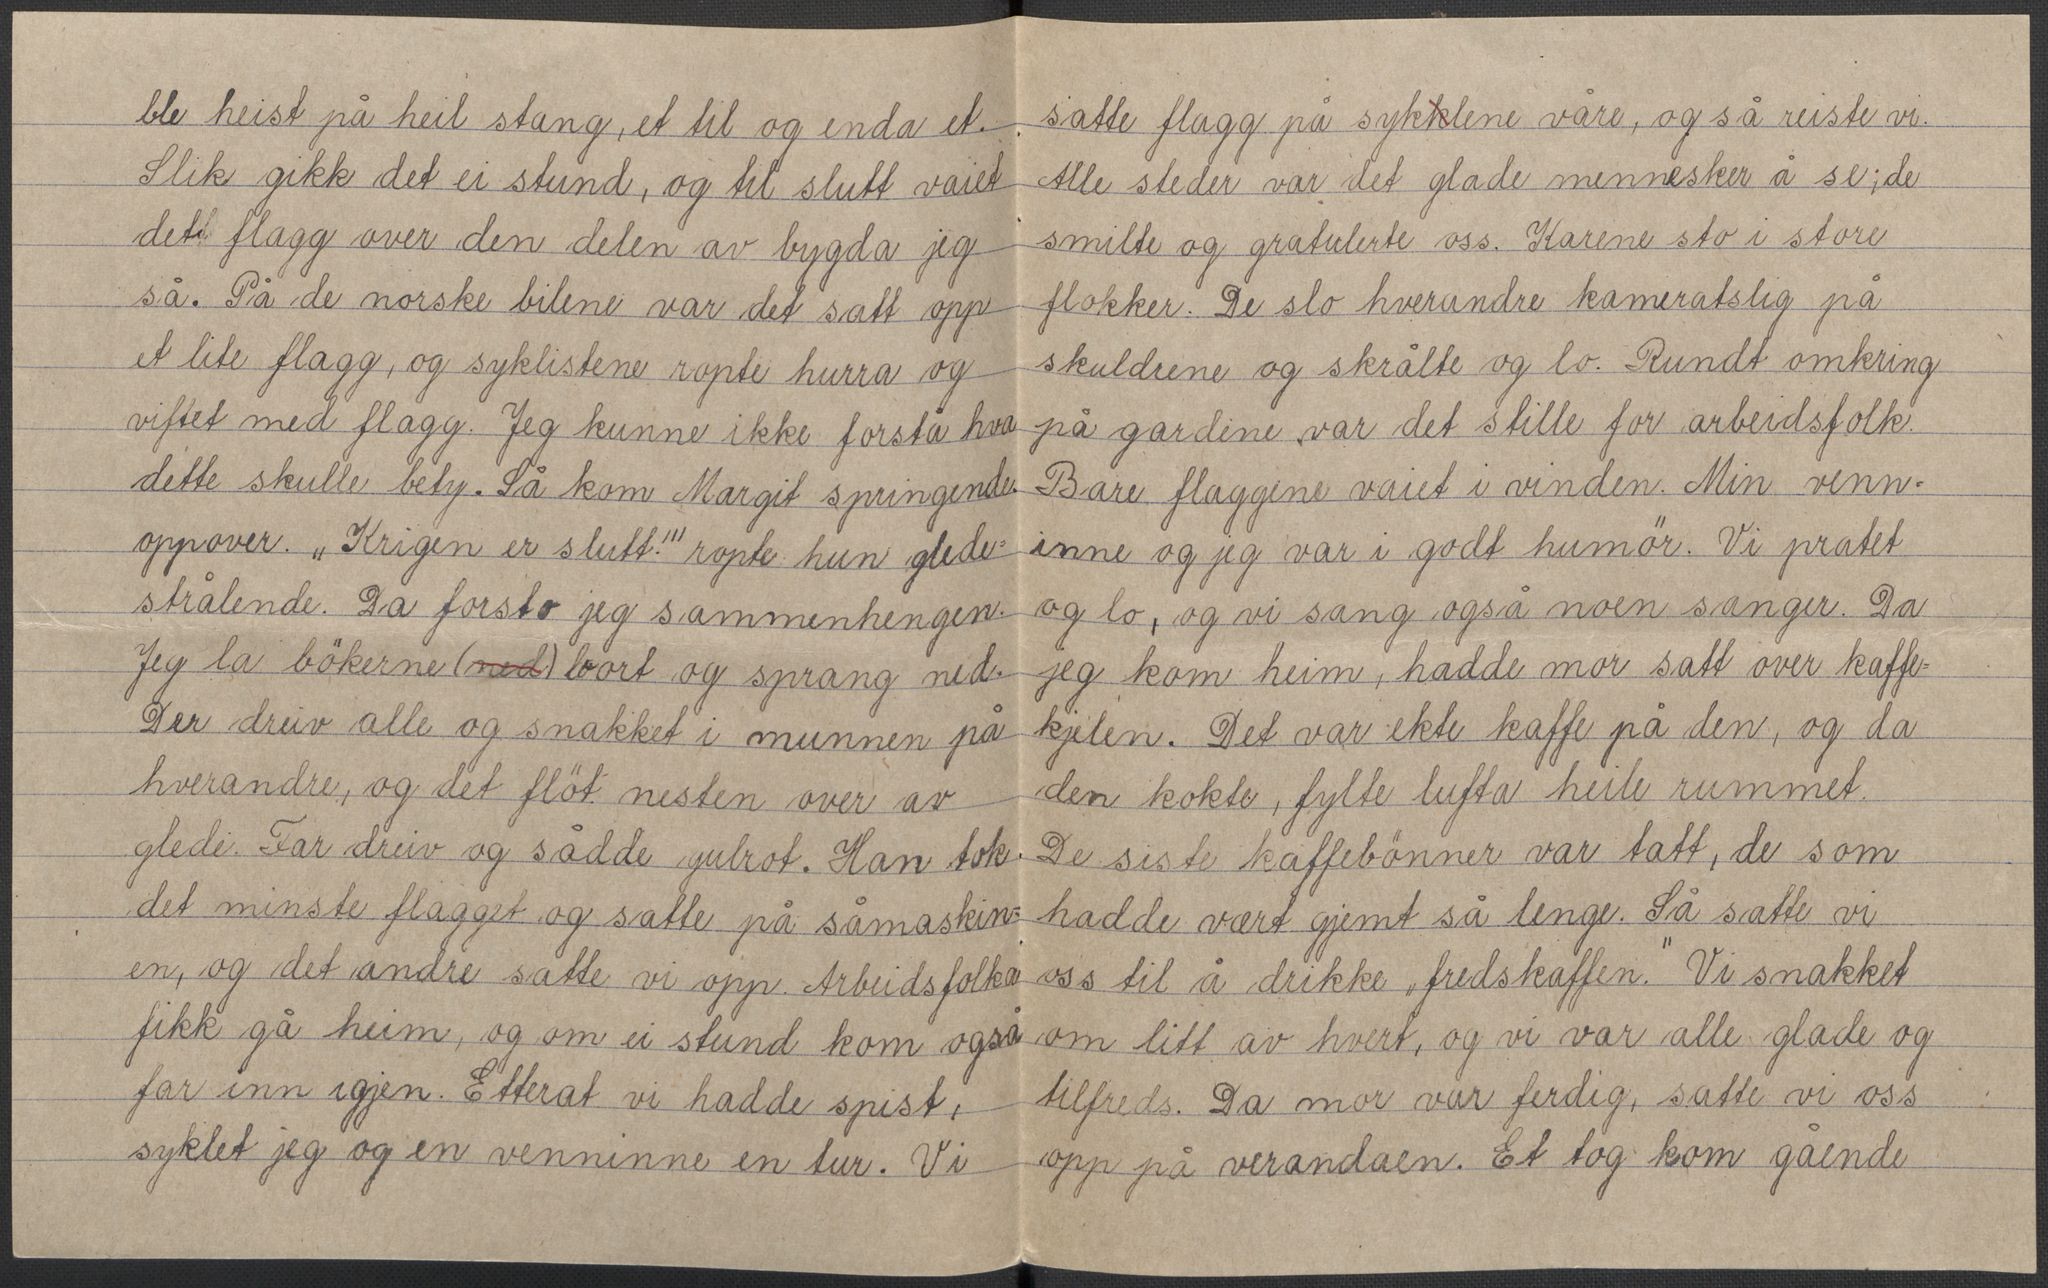 ble heist på heil stang, et til og enda et.
Slik gikk det ei stund, og til slutt vaiet
det flagg over den delen av bygda jeg
så. På de norske bilene var det satt opp
et lite flagg, og syklistene ropte hurra og
viftet med flagg. Jeg kunne ikke forstå hva
dette skulle bety. Så kom Margit springende
oppover. „Krigen er slutt!" ropte hun glede=
strålende. Da forsto jeg sammenhengen.
Jeg la bökerne (ned) bort og sprang ned.
Der dreiv alle og snakket i munnen på
hverandre, og det flöt nesten over av
glede. Far dreiv og sådde gulrot. Han tok
det minste flagget og satte på såmaskin=
en, og det andre satte vi opp. Arbeidsfolka
fikk gå heim, og om ei stund kom også
far inn igjen. Etterat vi hadde spist,
syklet jeg og en venninne en tur. Vi
satte flagg på sykklene våre, og så reiste vi.
Alle steder var det glade mennesker å se; de
smilte og gratulerte oss. Karene sto i store
flokker. De slo hverandre kameratslig på
skuldrene og skrålte og lo. Rundt omkring
på gardene var det stille for arbeidsfolk.
Bare flaggene vaiet i vinden. Min venn=
inne og jeg var i godt humör. Vi pratet
og lo, og vi sang også noen sanger. Da
jeg kom heim, hadde mor satt over kaffe=
kjelen. Det var ekte kaffe på den, og da
den kokte, fylte lufta heile rummet.
De siste kaffebönner var tatt, de som
hadde vært gjemt så lenge. Så satte vi
oss til å drikke „fredskaffen." Vi snakket
om litt av hvert, og vi var alle glade og
tilfreds. Da mor var ferdig, satte vi oss
opp på verandaen. Et tog kom gående